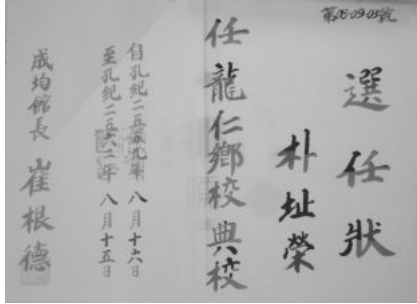 第08-09-03號
選任狀
朴址榮
任龍仁鄉校典校
自孔紀二五五九年八月十六日
至孔紀二五六二年八月十五日
成均館長 崔根德